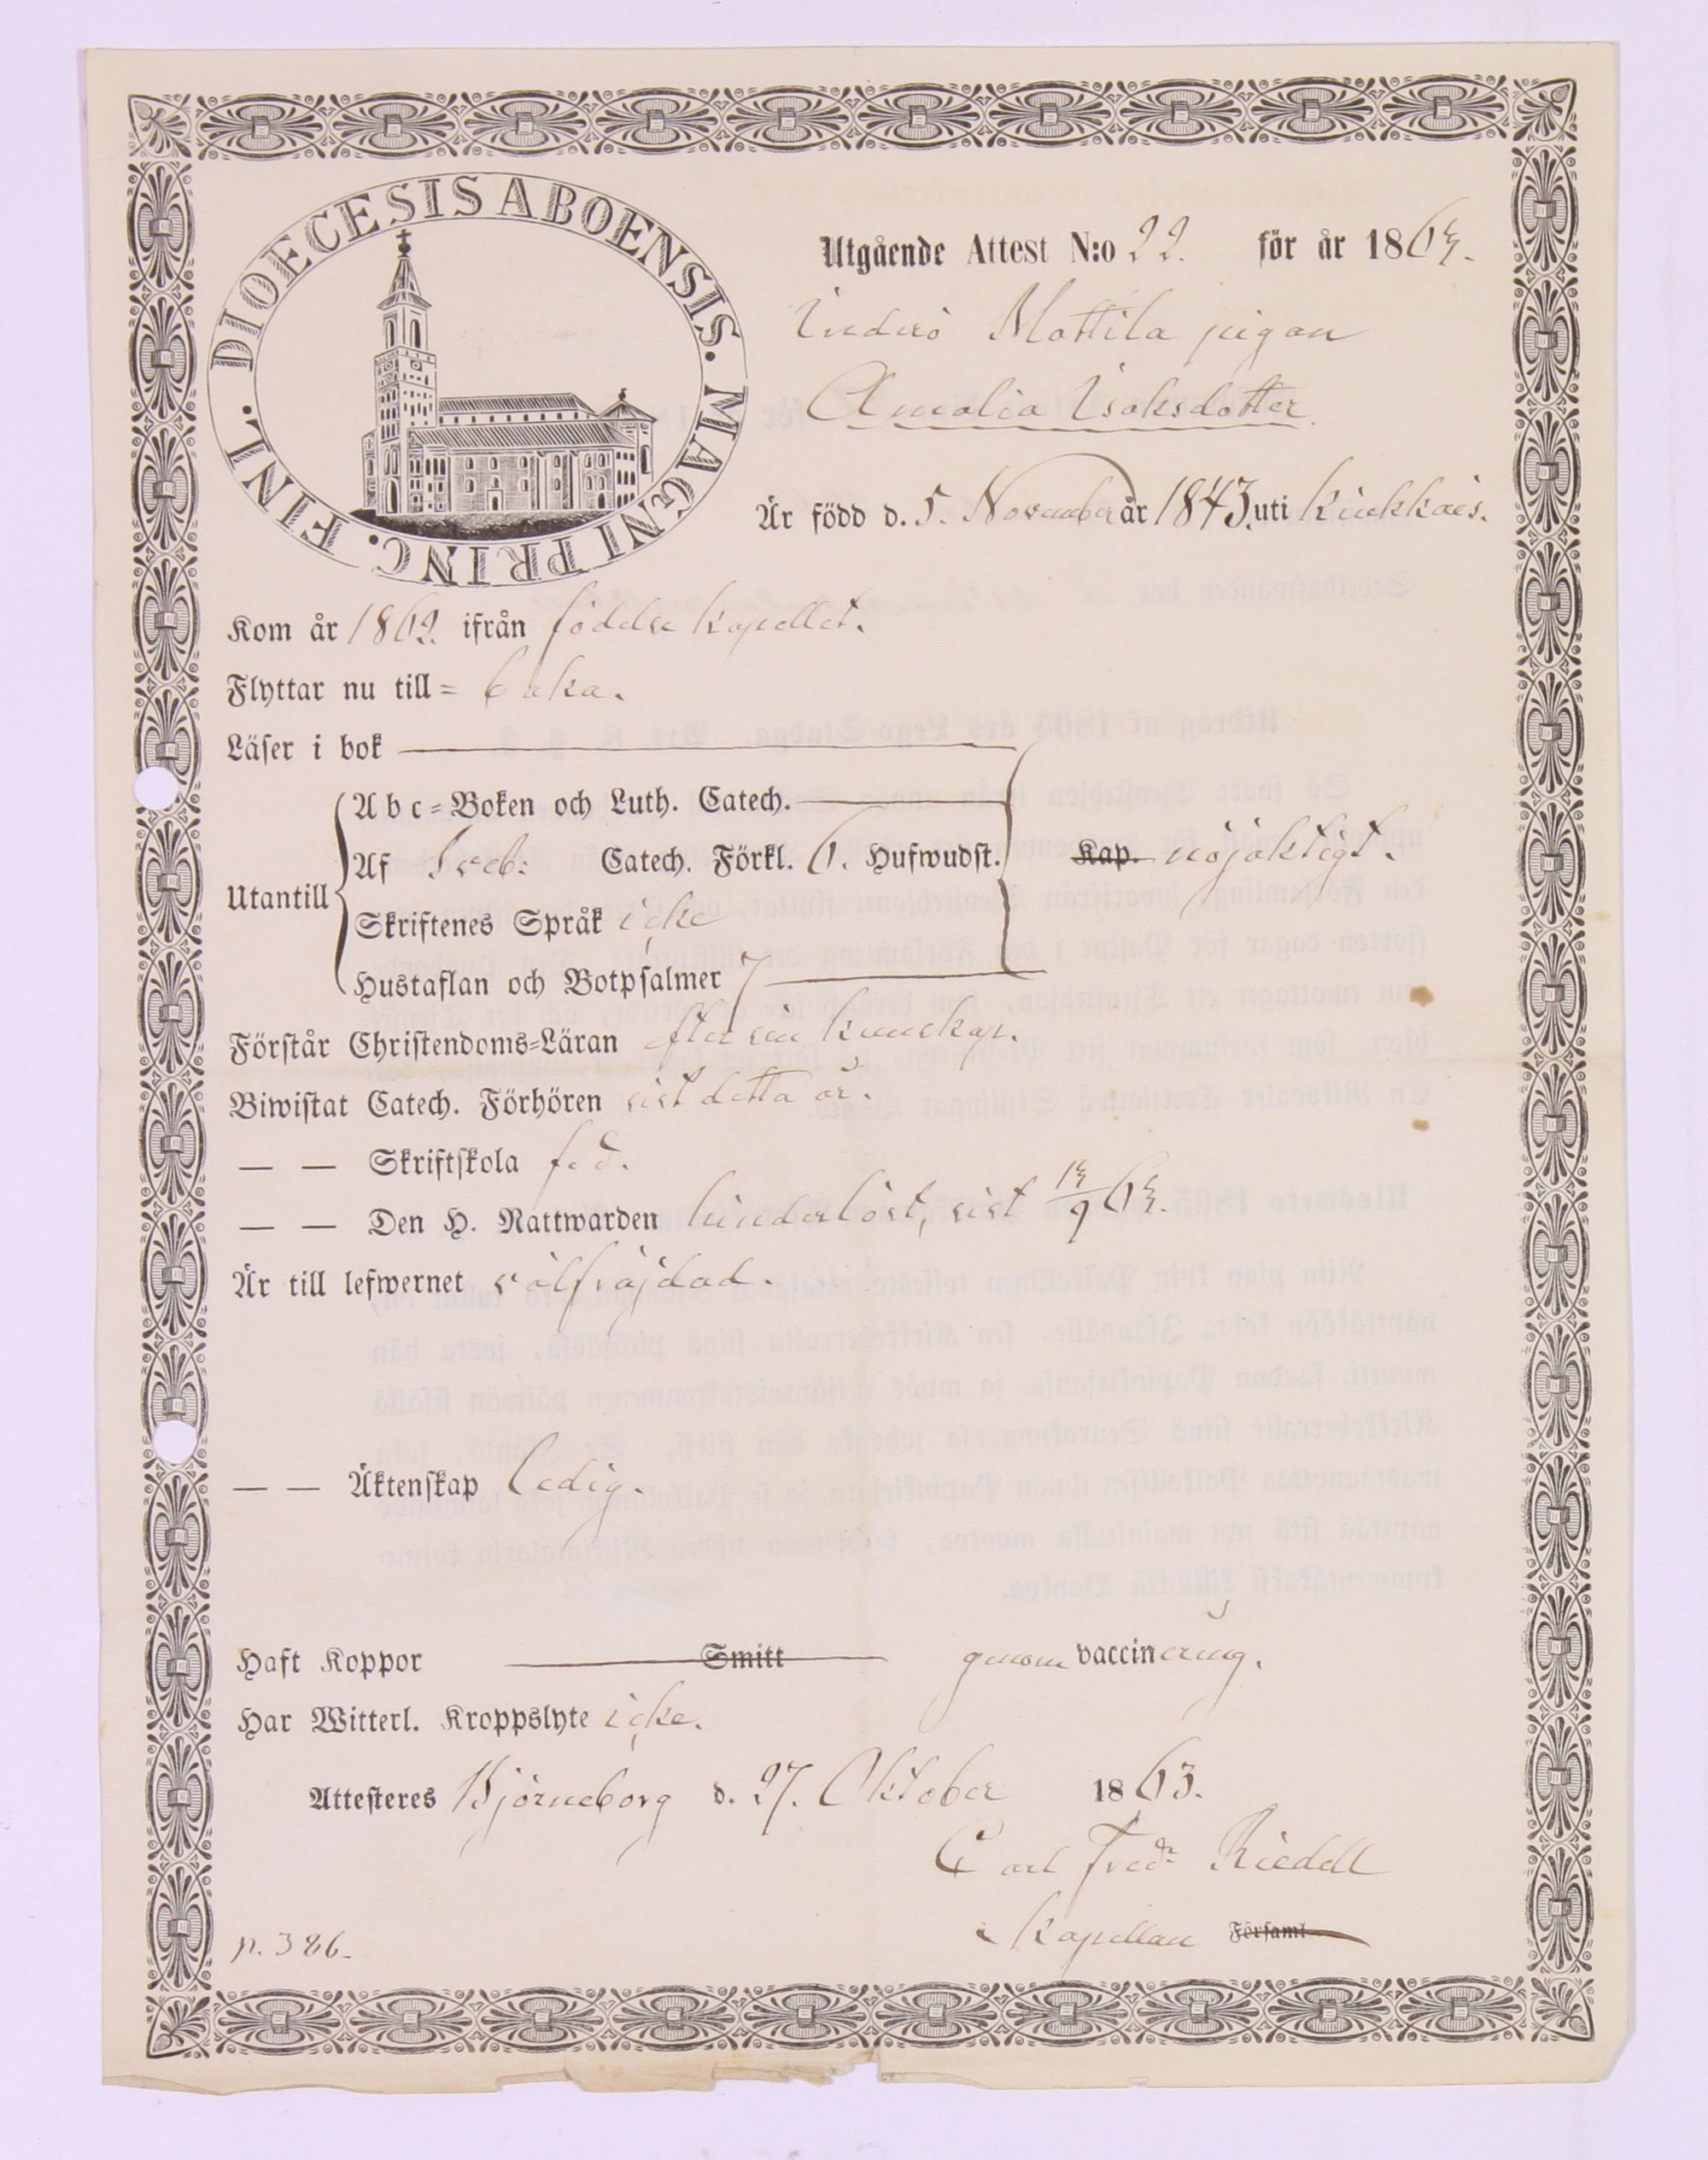 DIOECESIS ABOENSIS. MAGNI PRINC. FINL.
Utgående Attest N:o 22. för år 1863.
Inderö Mattila pigan
Amalia Isaksdotter
Är född d. 5. November år 1843. uti Kiukkais.
Kom år 1862. ifrån födelse kapellet.
Flyttar nu till = baka.
Läser i bok
Abc-Boken och Luth. Catech.
Utantill Af Sveb: Catech. Förkl. 6. Hufwudst. Kap. nöjaktigt.
Skriftenes Språk icke
Hustaflan och Botpsalmer
Förstår Christendoms-Läran efter sin kunskap.
Biwistat Catech. Förhören sist detta år.
— — Skriftskola f. d.
— — Den H. Nattwarden hinderlöst, sist 13/9 63.
Är till lefwernet välfräjdad.
— — Äktenskap ledig.
Haft Koppor Smitt genom vaccinering.
Har Witterl. Kroppslyte icke.
Attesteres Björneborg d. 27. Oktober 1863.
Carl Fredr Riedell
Kapellan Församl
p. 386.